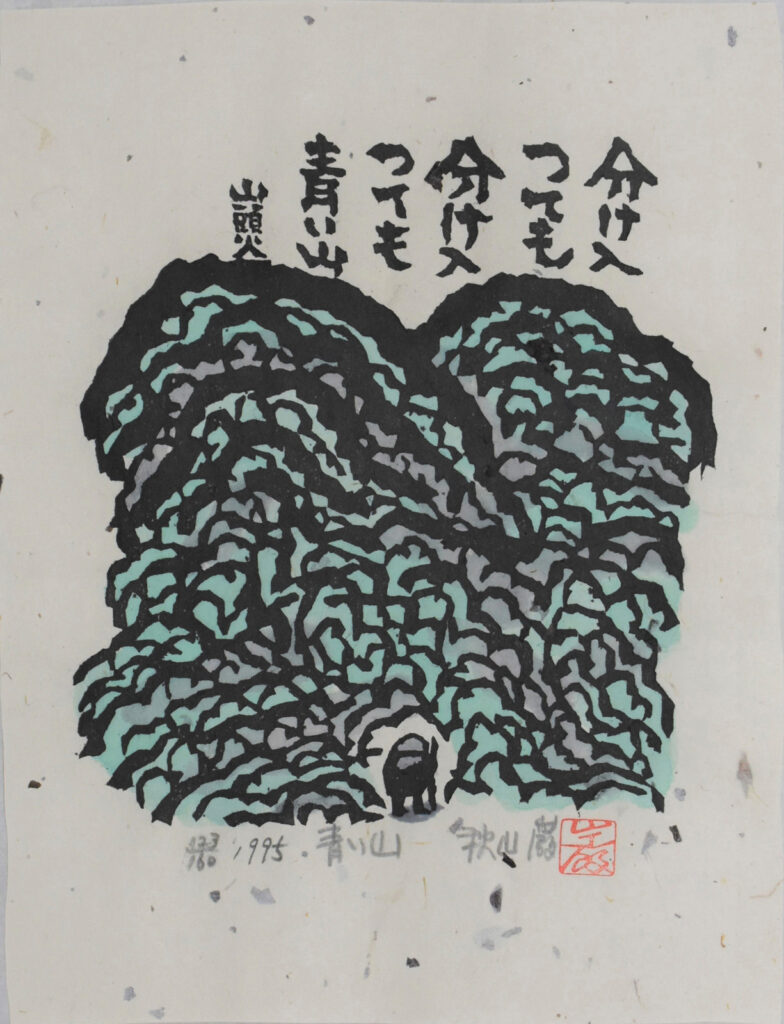 分け入
つても
分け入
つても
青い山
山頭火
1995. 青い山 秋山巌